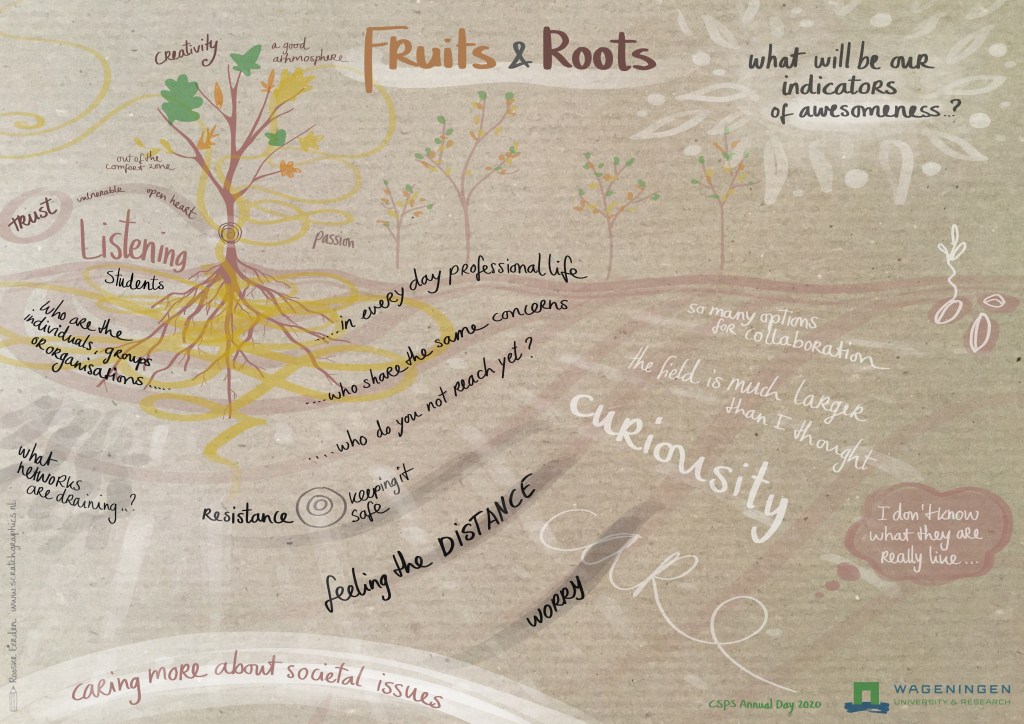 Fruits & Roots
creativity
a good
athmosphere
what will be our
indicators
of awesomeness..?
out of the
comfort zone
vulnerable
open heart
trust
Listening
Students
passion
Who are the
individuals, groups
or organisations.....
.....in every day professional life
....who share the same concerns
....who do you not reach yet?
so many options
for collaboration
the field is much larger
than I thought
curiousity
what
networks
are draining..?
Resistance
keeping it
safe
feeling the DISTANCE
worry
care
I don't know
what they are
really like...
caring more about societal issues
www.scratchgraphics.nl
CSPS Annual Day 2020
WAGENINGEN
UNIVERSITY & RESEARCH